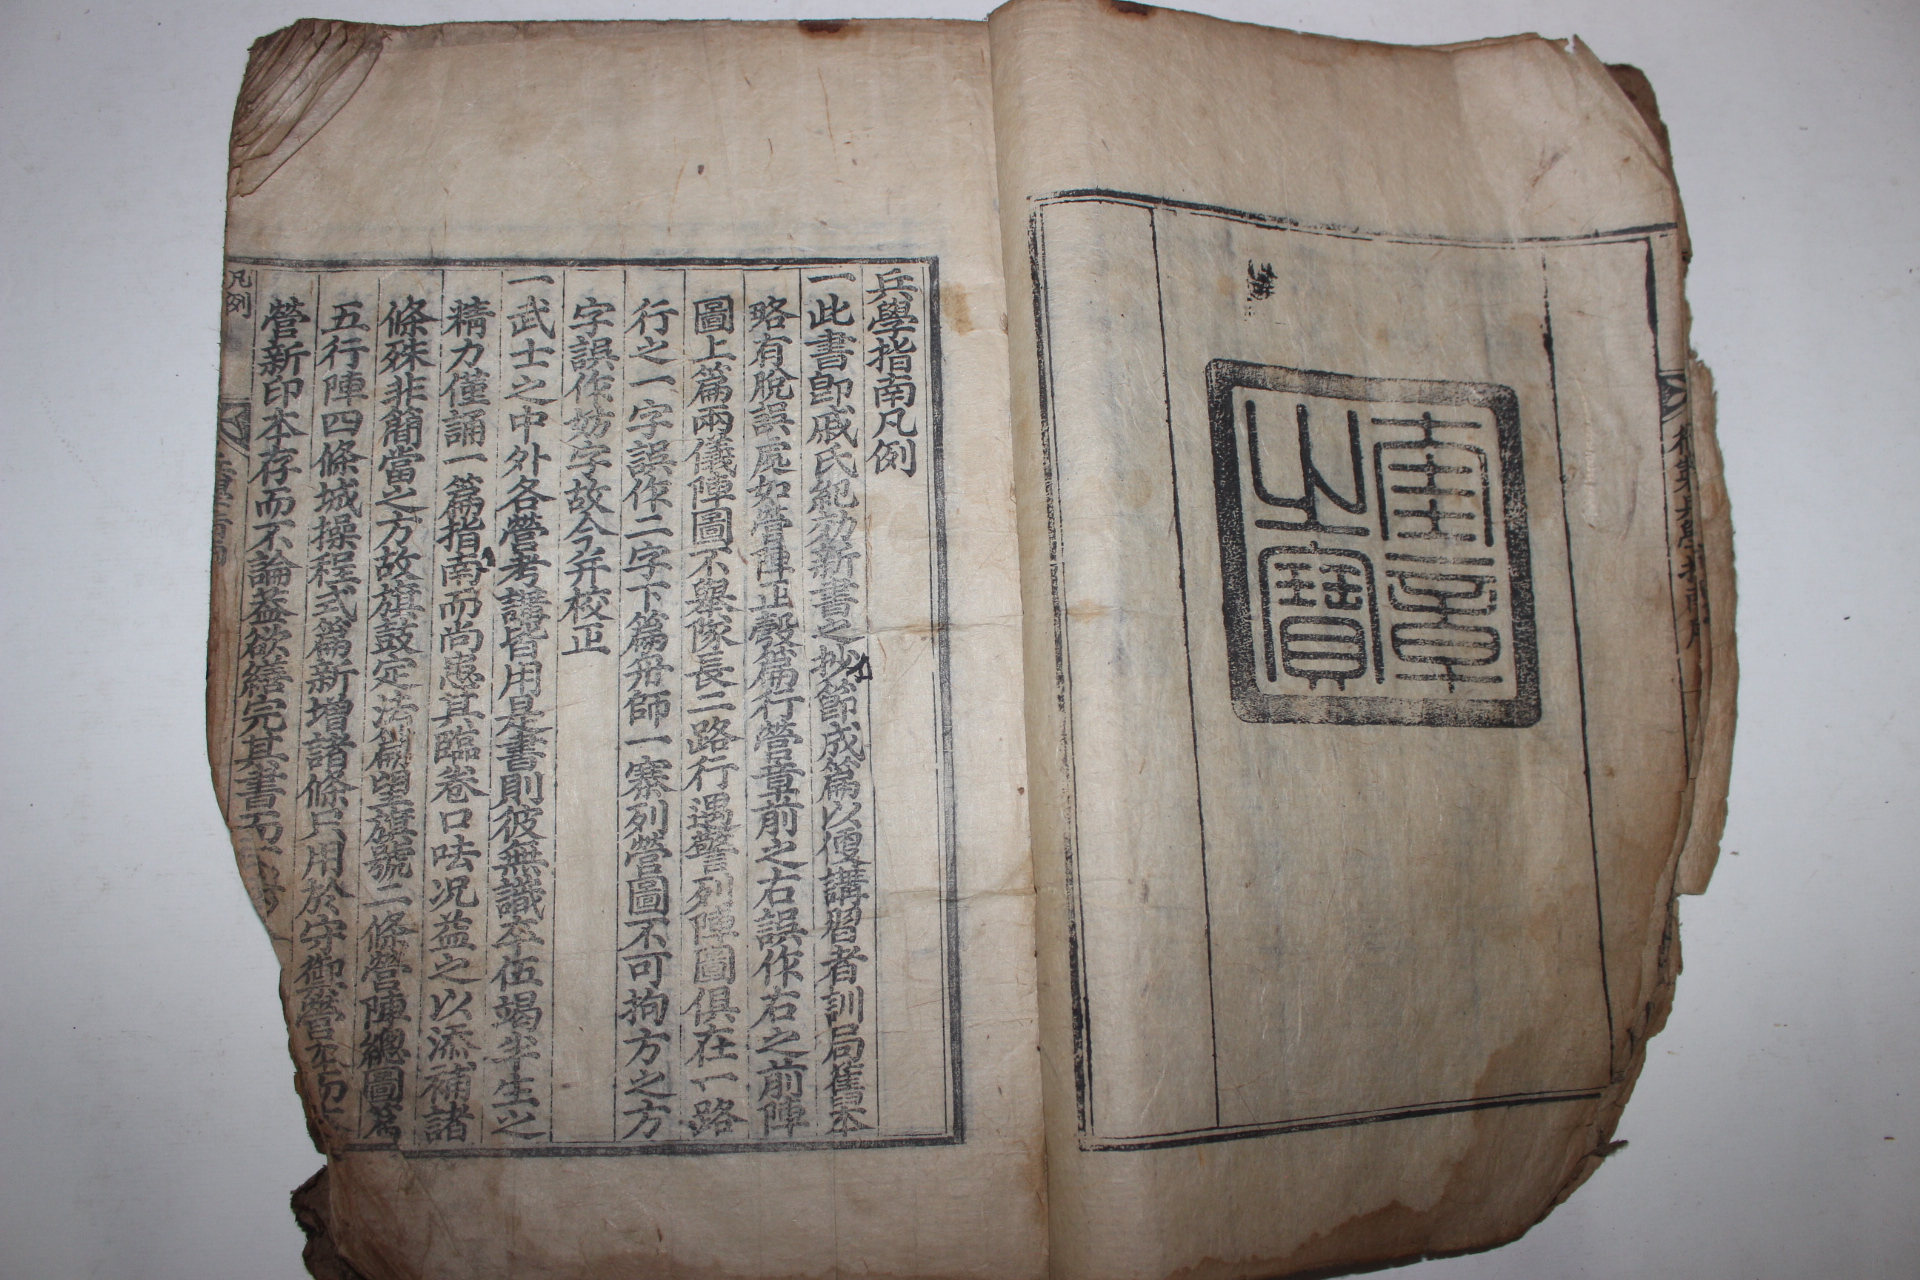 奎章
之寶
兵學指南凡例
一此書卽戚氏紀効新書之抄節成篇以便講習者訓局舊本
略有脫誤處如營陣正彀篇行營章前之右誤作右之前陣
圖上篇兩儀陣圖不擧隊長二路行遇警列陣圖俱在一路
行之一字誤作二字下篇舟師一寨列營圖不可拘方之方
字誤作妨字故今弁校正
一武士之中外各營考講皆用是書則彼無識卒伍竭半生之
精力僅誦一篇指南而尚患其臨卷口呿况益之以添補諸
條殊非簡當之方故旗鼓定法篇望旗號二條營陣總圖篇
五行陣四條城操程式篇新增諸條只用於守禦營
營新印本存而不論葢欲繕完其書而
凡例